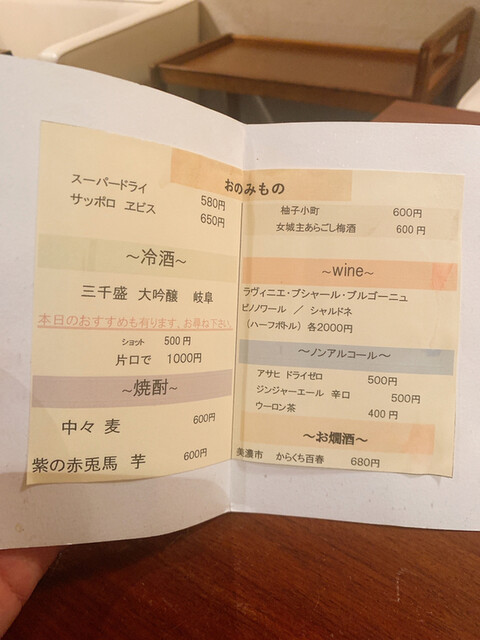 おのみもの
スーパードライ 580円
サッポロ ヱビス 650円
～冷酒～
三千盛 大吟醸 岐阜
本日のおすすめも有ります、お尋ね下さい。
ショット 500円
片口で 1000円
～焼酎～
中々 麦 600円
紫の赤兎馬 芋 600円
柚子小町 600円
女城主あらごし梅酒 600円
～wine～
ラヴィニエ・ブシャール・ブルゴーニュ
ピノノワール ／ シャルドネ
（ハーフボトル）各2000円
～ノンアルコール～
アサヒ ドライゼロ 500円
ジンジャーエール 辛口 500円
ウーロン茶 400円
～お燗酒～
美濃市 からくち百春 680円